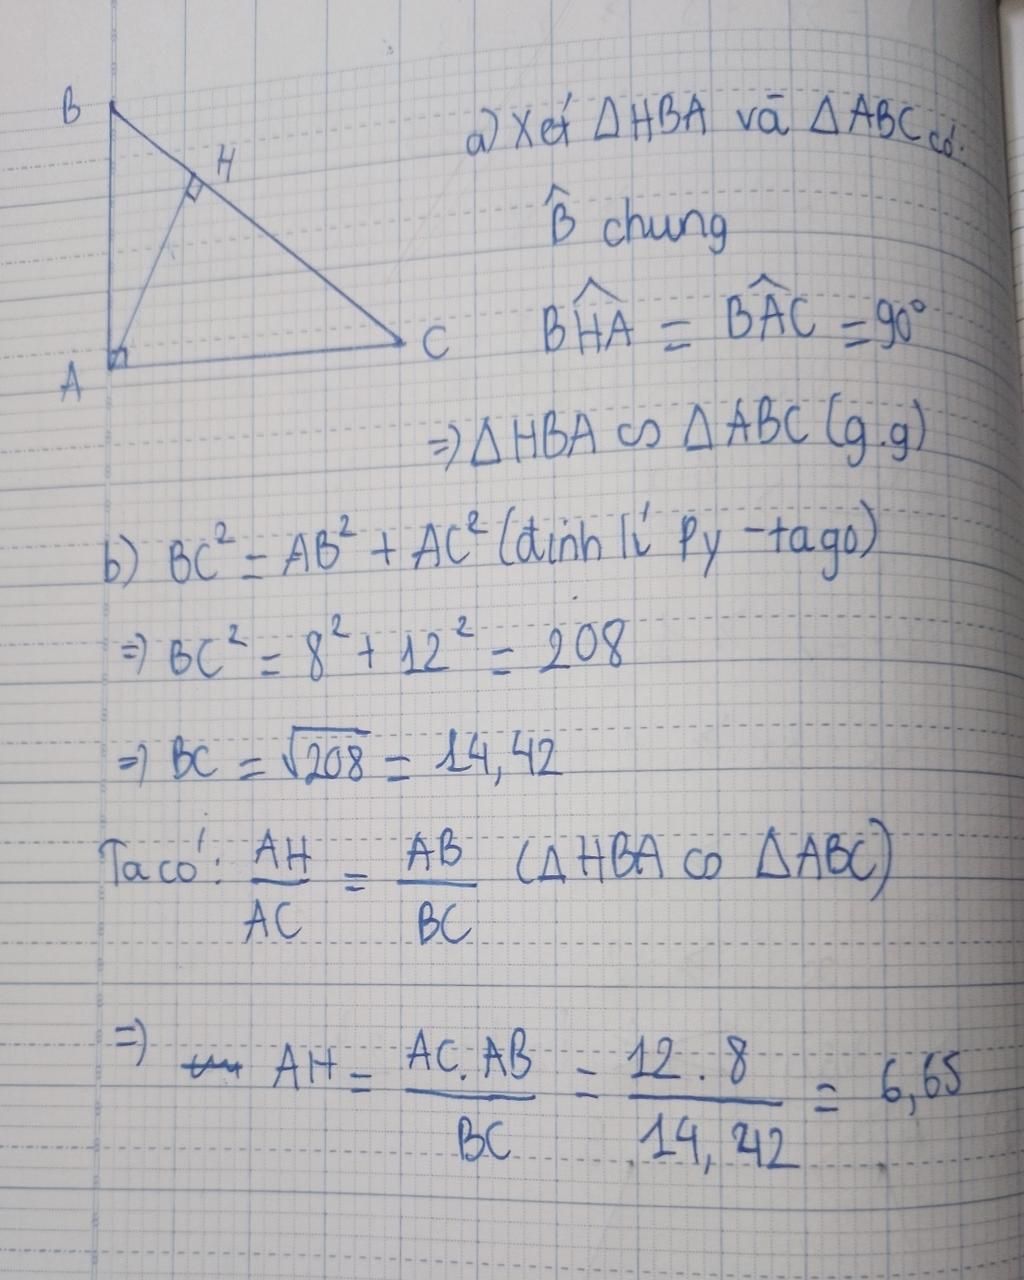 B
H
A
C
a) Xét ΔHBA và ΔABC có:
B̂ chung
BĤA = BÂC = 90°
=> ΔHBA ∽ ΔABC (g.g)
b) BC² = AB² + AC² (định lí Py-tago)
=> BC² = 8² + 12² = 208
=> BC = √208 = 14,42
Ta có: AH/AC = AB/BC (ΔHBA ∽ ΔABC)
=> AH = AC.AB/BC = 12.8/14,42 = 6,65